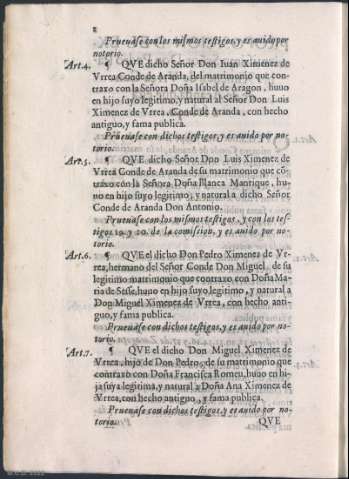 2
Prueuase con los mismos testigos, y es auido por
notorio.
Art.4. ¶ QVE dicho Señor Don Iuan Ximenez de
Vrrea Conde de Aranda, del matrimonio que con-
traxo con la Señora Doña Isabel de Aragon, huuo
en hijo suyo legitimo, y natural al Señor Don Luis
Ximenez de Vrrea, Conde de Aranda, con hecho
antiguo, y fama publica.
Prueuase con dichos testigos, y es auido por no-
torio.
Art.5. ¶ QVE dicho Señor Don Luis Ximenez de
Vrrea Conde de Aranda de su matrimonio que cō-
traxo con la Señora Doña Blanca Manrique, hu-
uo en hijo suyo legitimo, y natural a dicho Señor
Conde de Aranda Don Antonio.
Prueuase con los mismos testigos, y con los tes-
tigos 19. y 20. de la comission, y es auido por no-
torio.
Art.6. ¶ QVE el dicho Don Pedro Ximenes de Vr-
rea, hermano del Señor Conde Don Miguel, de su
legitimo matrimonio que contraxo con Doña Ma-
ria de Sesse, huuo en hijo suyo legitimo, y natural a
Don Miguel Ximenes de Vrrea, con hecho anti-
guo, y fama publica.
Prueuase con dichos testigos, y es auido por no-
torio.
Art.7. ¶ QVE el dicho Don Miguel Ximenez de
Vrrea, hijo de Don Pedro, de su matrimonio que
contraxo con Doña Francisca Romeu, huuo en hi-
ja suya legitima, y natural a Doña Ana Ximenez de
Vrrea, con hecho antiguo, y fama publica.
Prueuase con dichos testigos, y es auido por no-
torio.
QVE